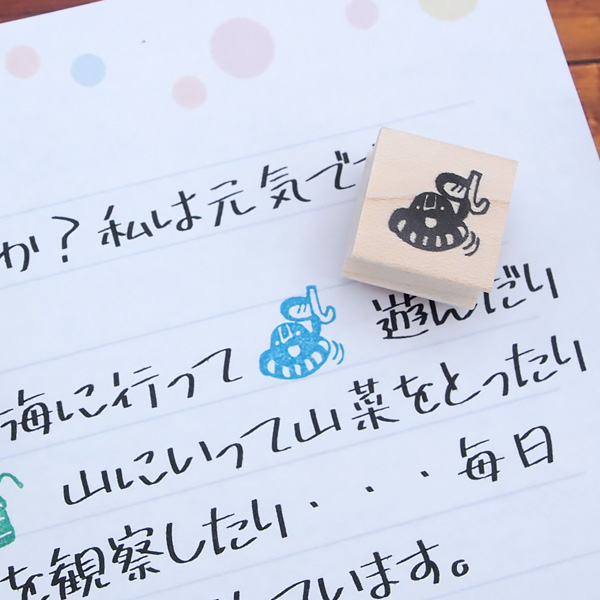 か？私は元気で
海に行って 遊んだり
山にいって山菜をとったり
を観察したり・・・毎日
ています。